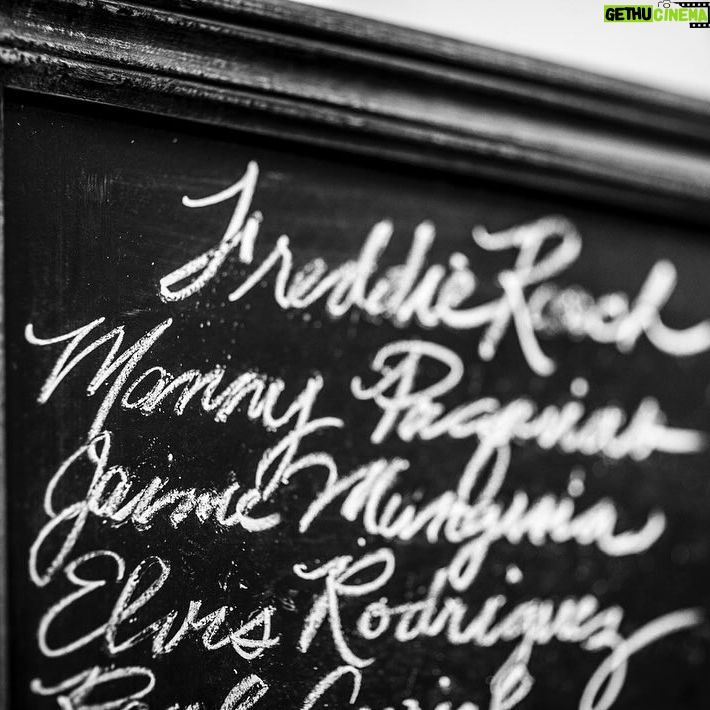 GETHU CINEMA
Freddie Roach
Manny Pacquiao
Jaime Munguia
Elvis Rodriguez